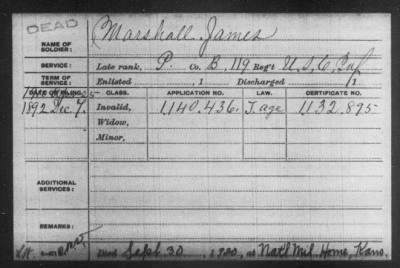 DEAD
Marshall, James
NAME OF SOLDIER:
SERVICE: Late rank, P. Co. B, 119 Reg't U.S.C. Inf
TERM OF SERVICE: Enlisted , 1 Discharged , 1
DATE OF FILING. CLASS. APPLICATION NO. LAW. CERTIFICATE NO.
1892 Dec 7. Invalid, 1140.436. J. age 1132.895
Widow,
Minor,
ADDITIONAL SERVICES:
REMARKS:
Died Sept 30, 1920, at Nat'l Mil. Home, Kans.